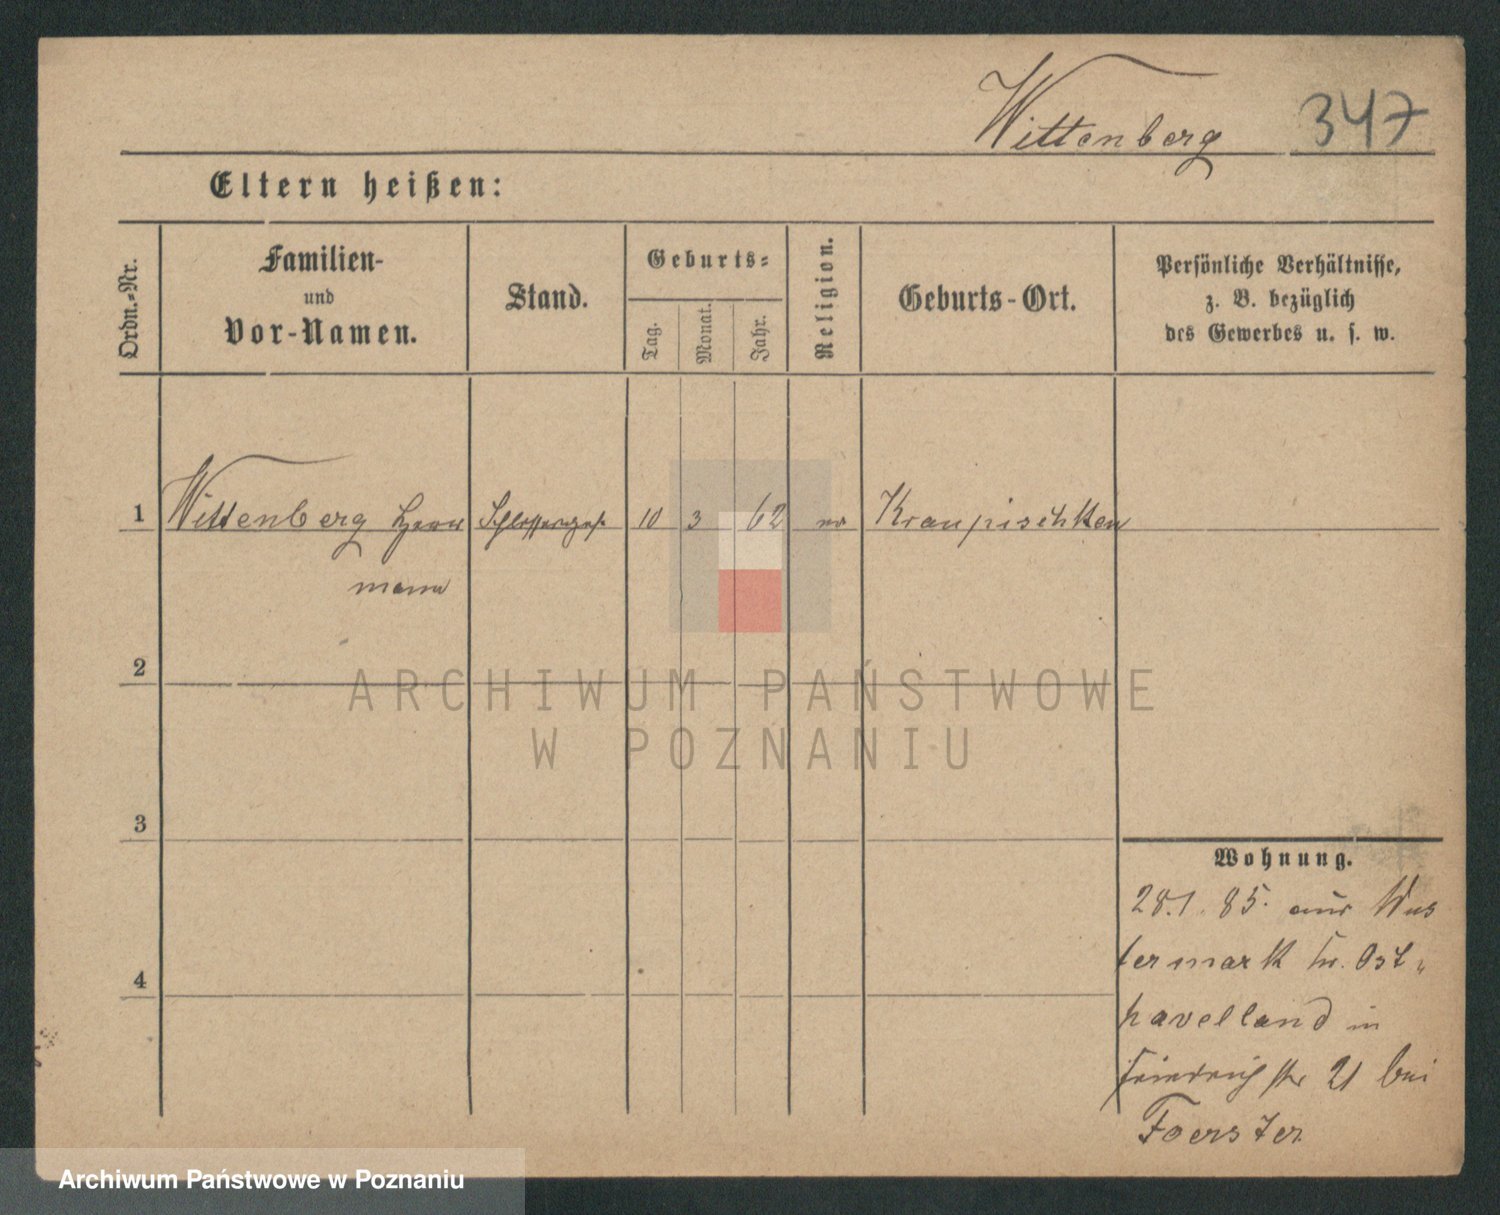 Wittenberg 347
Eltern heißen:
Ordn.-Nr.
Familien-
und
Vor-Namen.
Stand.
Geburts-
Tag.
Monat.
Jahr.
Religion.
Geburts-Ort.
Persönliche Verhältnisse,
z. B. bezüglich
des Gewerbes u. s. w.
1 Wittenberg Herr 10 3 62 ev Kraupischken
mann
2
ARCHIWUM PAŃSTWOWE
W POZNANIU
3
4
Wohnung.
28.1.85. aus Wus
termark Kr. Ost-
havelland in
Friedrichstr 21 bei
Foerster
Archiwum Państwowe w Poznaniu